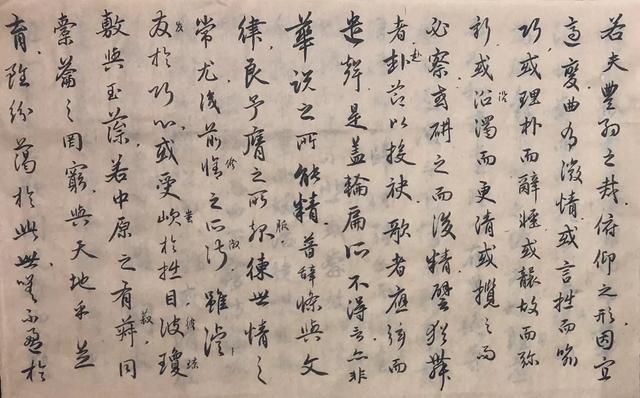 若夫豐約之裁俯仰之形因宜
適變曲有微情或言拙而喻
巧或理朴而辭輕或襲故而弥
新或沿濁而更清或覽之而
必察或研之而後精譬猶舞
者赴節以投袂歌者應絃而
遣聲是盖輪扁所不得言亦非
華說之所能精普辭條與文
律良予膺之所服練世情之
常尤識前脩之所淑雖濬
發於巧心或受蚩於拙目彼瓊
敷與玉藻若中原之有菽同
橐籥之罔窮與天地乎並
育雖紛藹於此世嗟不盈於